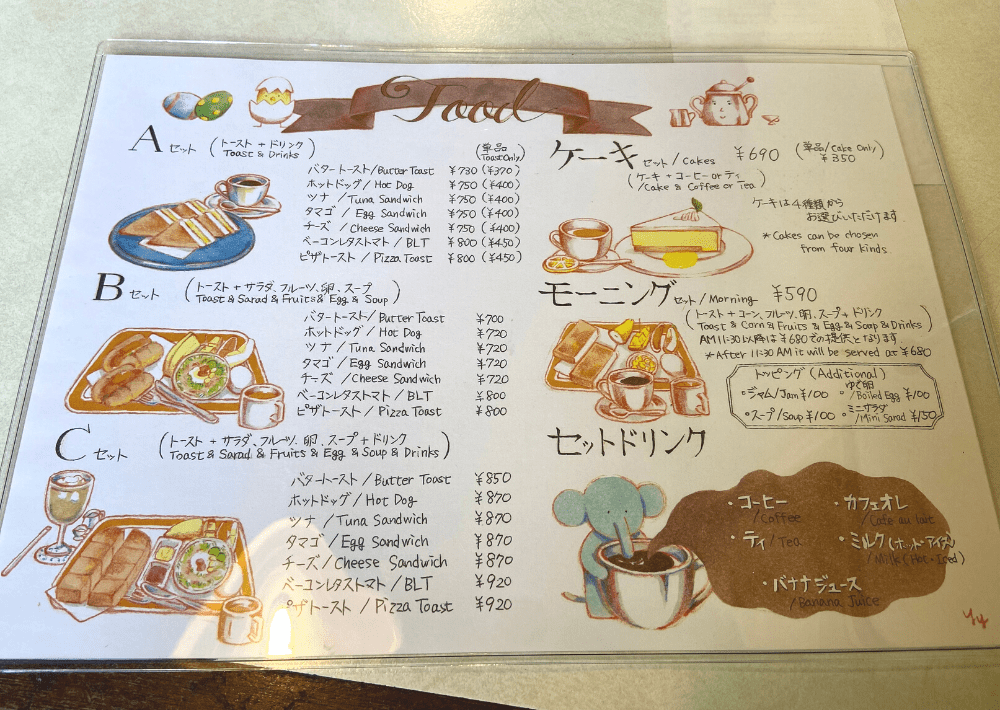 Food
A セット (トースト + ドリンク
Toast & Drinks)
(単品
Toast Only)
バタートースト/Butter Toast ¥730 (¥370)
ホットドッグ/Hot Dog ¥750 (¥400)
ツナ/Tuna Sandwich ¥750 (¥400)
タマゴ/Egg Sandwich ¥750 (¥400)
チーズ/Cheese Sandwich ¥750 (¥400)
ベーコンレタストマト/BLT ¥800 (¥450)
ピザトースト/Pizza Toast ¥800 (¥450)
B セット (トースト + サラダ、フルーツ、卵、スープ
Toast & Sarad & Fruits & Egg & Soup)
バタートースト/Butter Toast ¥700
ホットドッグ/Hot Dog ¥720
ツナ/Tuna Sandwich ¥720
タマゴ/Egg Sandwich ¥720
チーズ/Cheese Sandwich ¥720
ベーコンレタストマト/BLT ¥800
ピザトースト/Pizza Toast ¥800
C セット (トースト + サラダ、フルーツ、卵、スープ + ドリンク
Toast & Sarad & Fruits & Egg & Soup & Drinks)
バタートースト/Butter Toast ¥850
ホットドッグ/Hot Dog ¥870
ツナ/Tuna Sandwich ¥870
タマゴ/Egg Sandwich ¥870
チーズ/Cheese Sandwich ¥870
ベーコンレタストマト/BLT ¥920
ピザトースト/Pizza Toast ¥920
ケーキセット/Cakes ¥690 (単品/Cake Only
¥350)
(ケーキ + コーヒー or ティ
/Cake & Coffee or Tea)
ケーキは4種類から
お選びいただけます
*Cakes can be chosen
from four kinds.
モーニングセット/Morning ¥590
(トースト + コーン、フルーツ、卵、スープ + ドリンク
Toast & Corn & Fruits & Egg & Soap & Drinks)
AM11:30以降は¥680での提供となります。
*After 11:30 AM it will be served at ¥680
トッピング(Additional)
・ジャム/Jam ¥100
・ゆで卵/Boiled Egg ¥100
・スープ/Soup ¥100
・ミニサラダ/Mini Sarad ¥150
セットドリンク
・コーヒー
/Coffee
・カフェオレ
/Cafe au lait
・ティ/Tea
・ミルク(ホット・アイス)
/Milk (Hot・Iced)
・バナナジュース
/Banana Juice